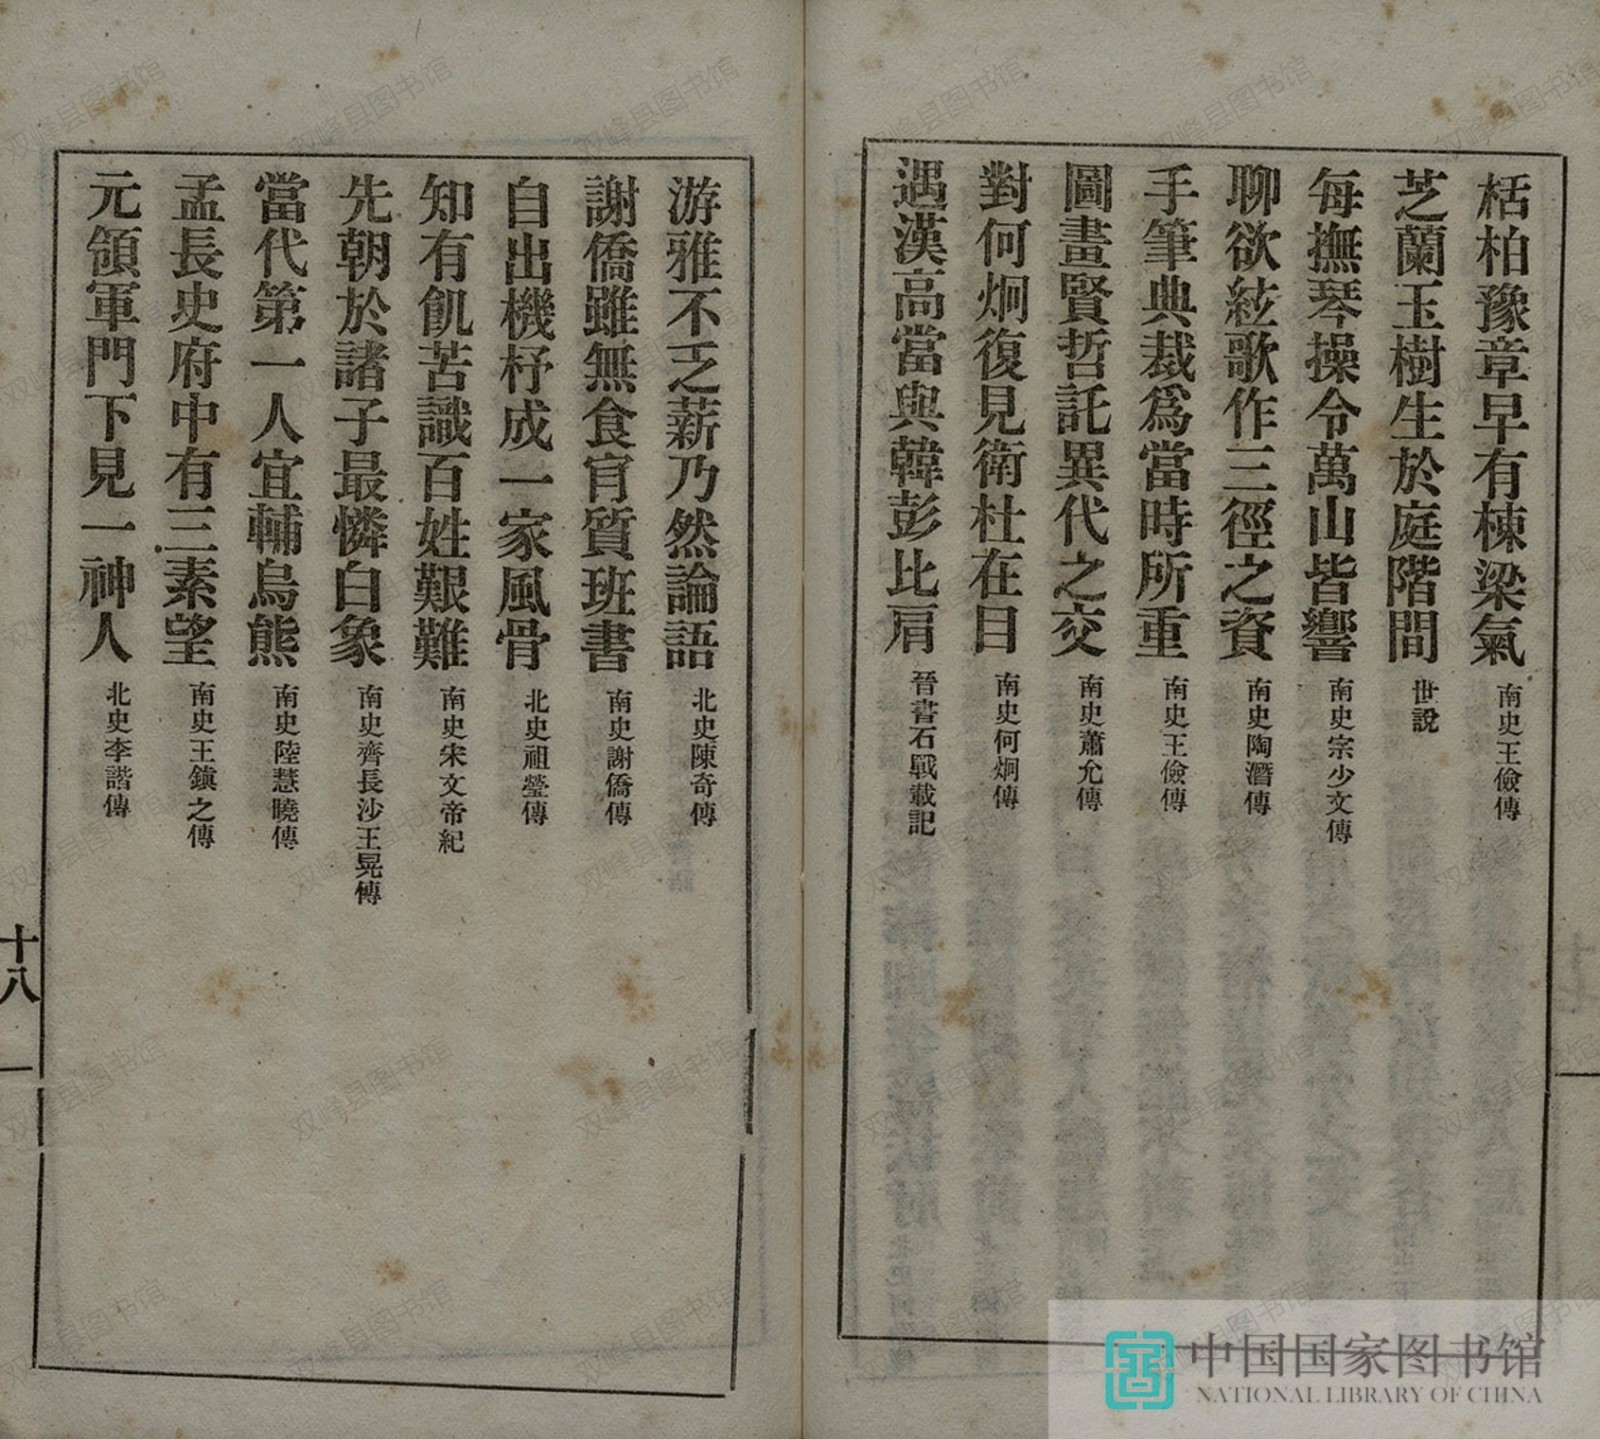 栝柏豫章早有棟梁氣 南史王儉傳
芝蘭玉樹生於庭階間 世說
每撫琴操令萬山皆響 南史宗少文傳
聊欲絃歌作三徑之資 南史陶潛傳
手筆典裁爲當時所重 南史王儉傳
圖畫賢哲託異代之交 南史蕭允傳
對何炯復見衛杜在目 南史何炯傳
遇漢高當與韓彭比肩 晉書石勒載記
游雅不乏薪乃然論語 北史陳奇傳
謝僑雖無食肎質班書 南史謝僑傳
自出機杼成一家風骨 北史祖瑩傳
知有飢苦識百姓艱難 南史宋文帝紀
先朝於諸子最憐白象 南史齊長沙王晃傳
當代第一人宜輔烏熊 南史陸慧曉傳
孟長史府中有三素望 南史王鎭之傳
元領軍門下見一神人 北史李諧傳
十八
中国国家图书馆
NATIONAL LIBRARY OF CHINA
双峰县图书馆